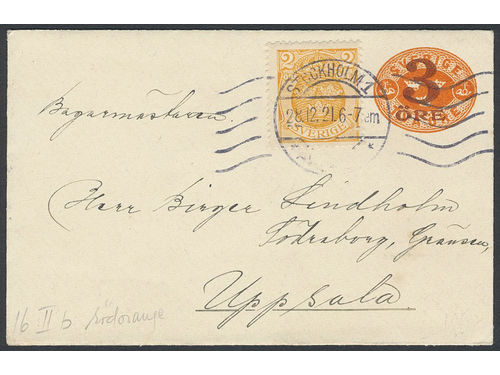 2 2
SVERIGE
STOCKHOLM 1
28.12.21.6-7 em
SVERIGE
3
ÖRE
Bagarmästaren.
Herr Birger Lindholm
Uppsala.
16 II b rödorange